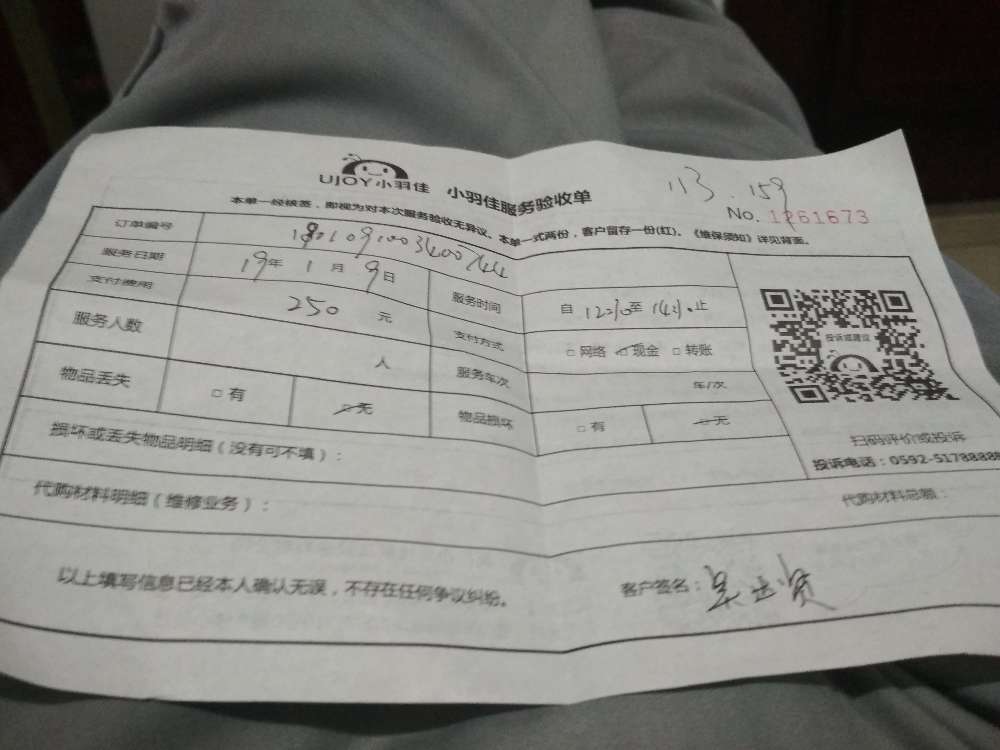 UJOY小羽佳 小羽佳服务验收单
113.159
No. 1261673
本单一经核签,即视为对本次服务验收无异议。本单一式两份,客户留存一份(红)。《维保须知》详见背面。
订单编号
服务日期 19年 1月 9日 服务时间 自 12:10 至 14:10 止
支付费用 250 元 支付方式 □网络 ☑现金 □转账
服务人数 人 服务车次 车/次
物品丢失 □有 ☑无 物品损坏 □有 ☑无
投诉或建议
扫码评价或投诉
投诉电话:0592-5178888
损坏或丢失物品明细(没有可不填):
代购材料明细(维修业务): 代购材料总额:
以上填写信息已经本人确认无误,不存在任何争议纠纷。 客户签名: